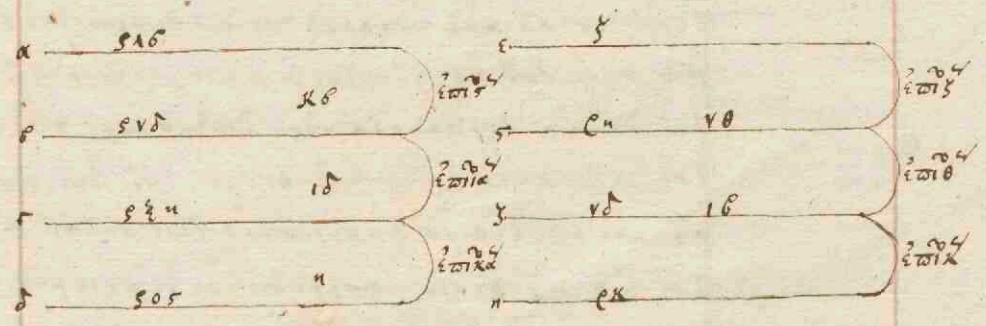 α ρλβ
κβ ἐπὶϛ
β ρνδ
ιδ ἐπὶια
γ ρξη
η ἐπὶκα
δ ροϛ
ε ζ
ἐπὶζ
ϛ ρη νθ
ἐπὶθ
ζ νδ ιβ
ἐπὶκ
η ρκ